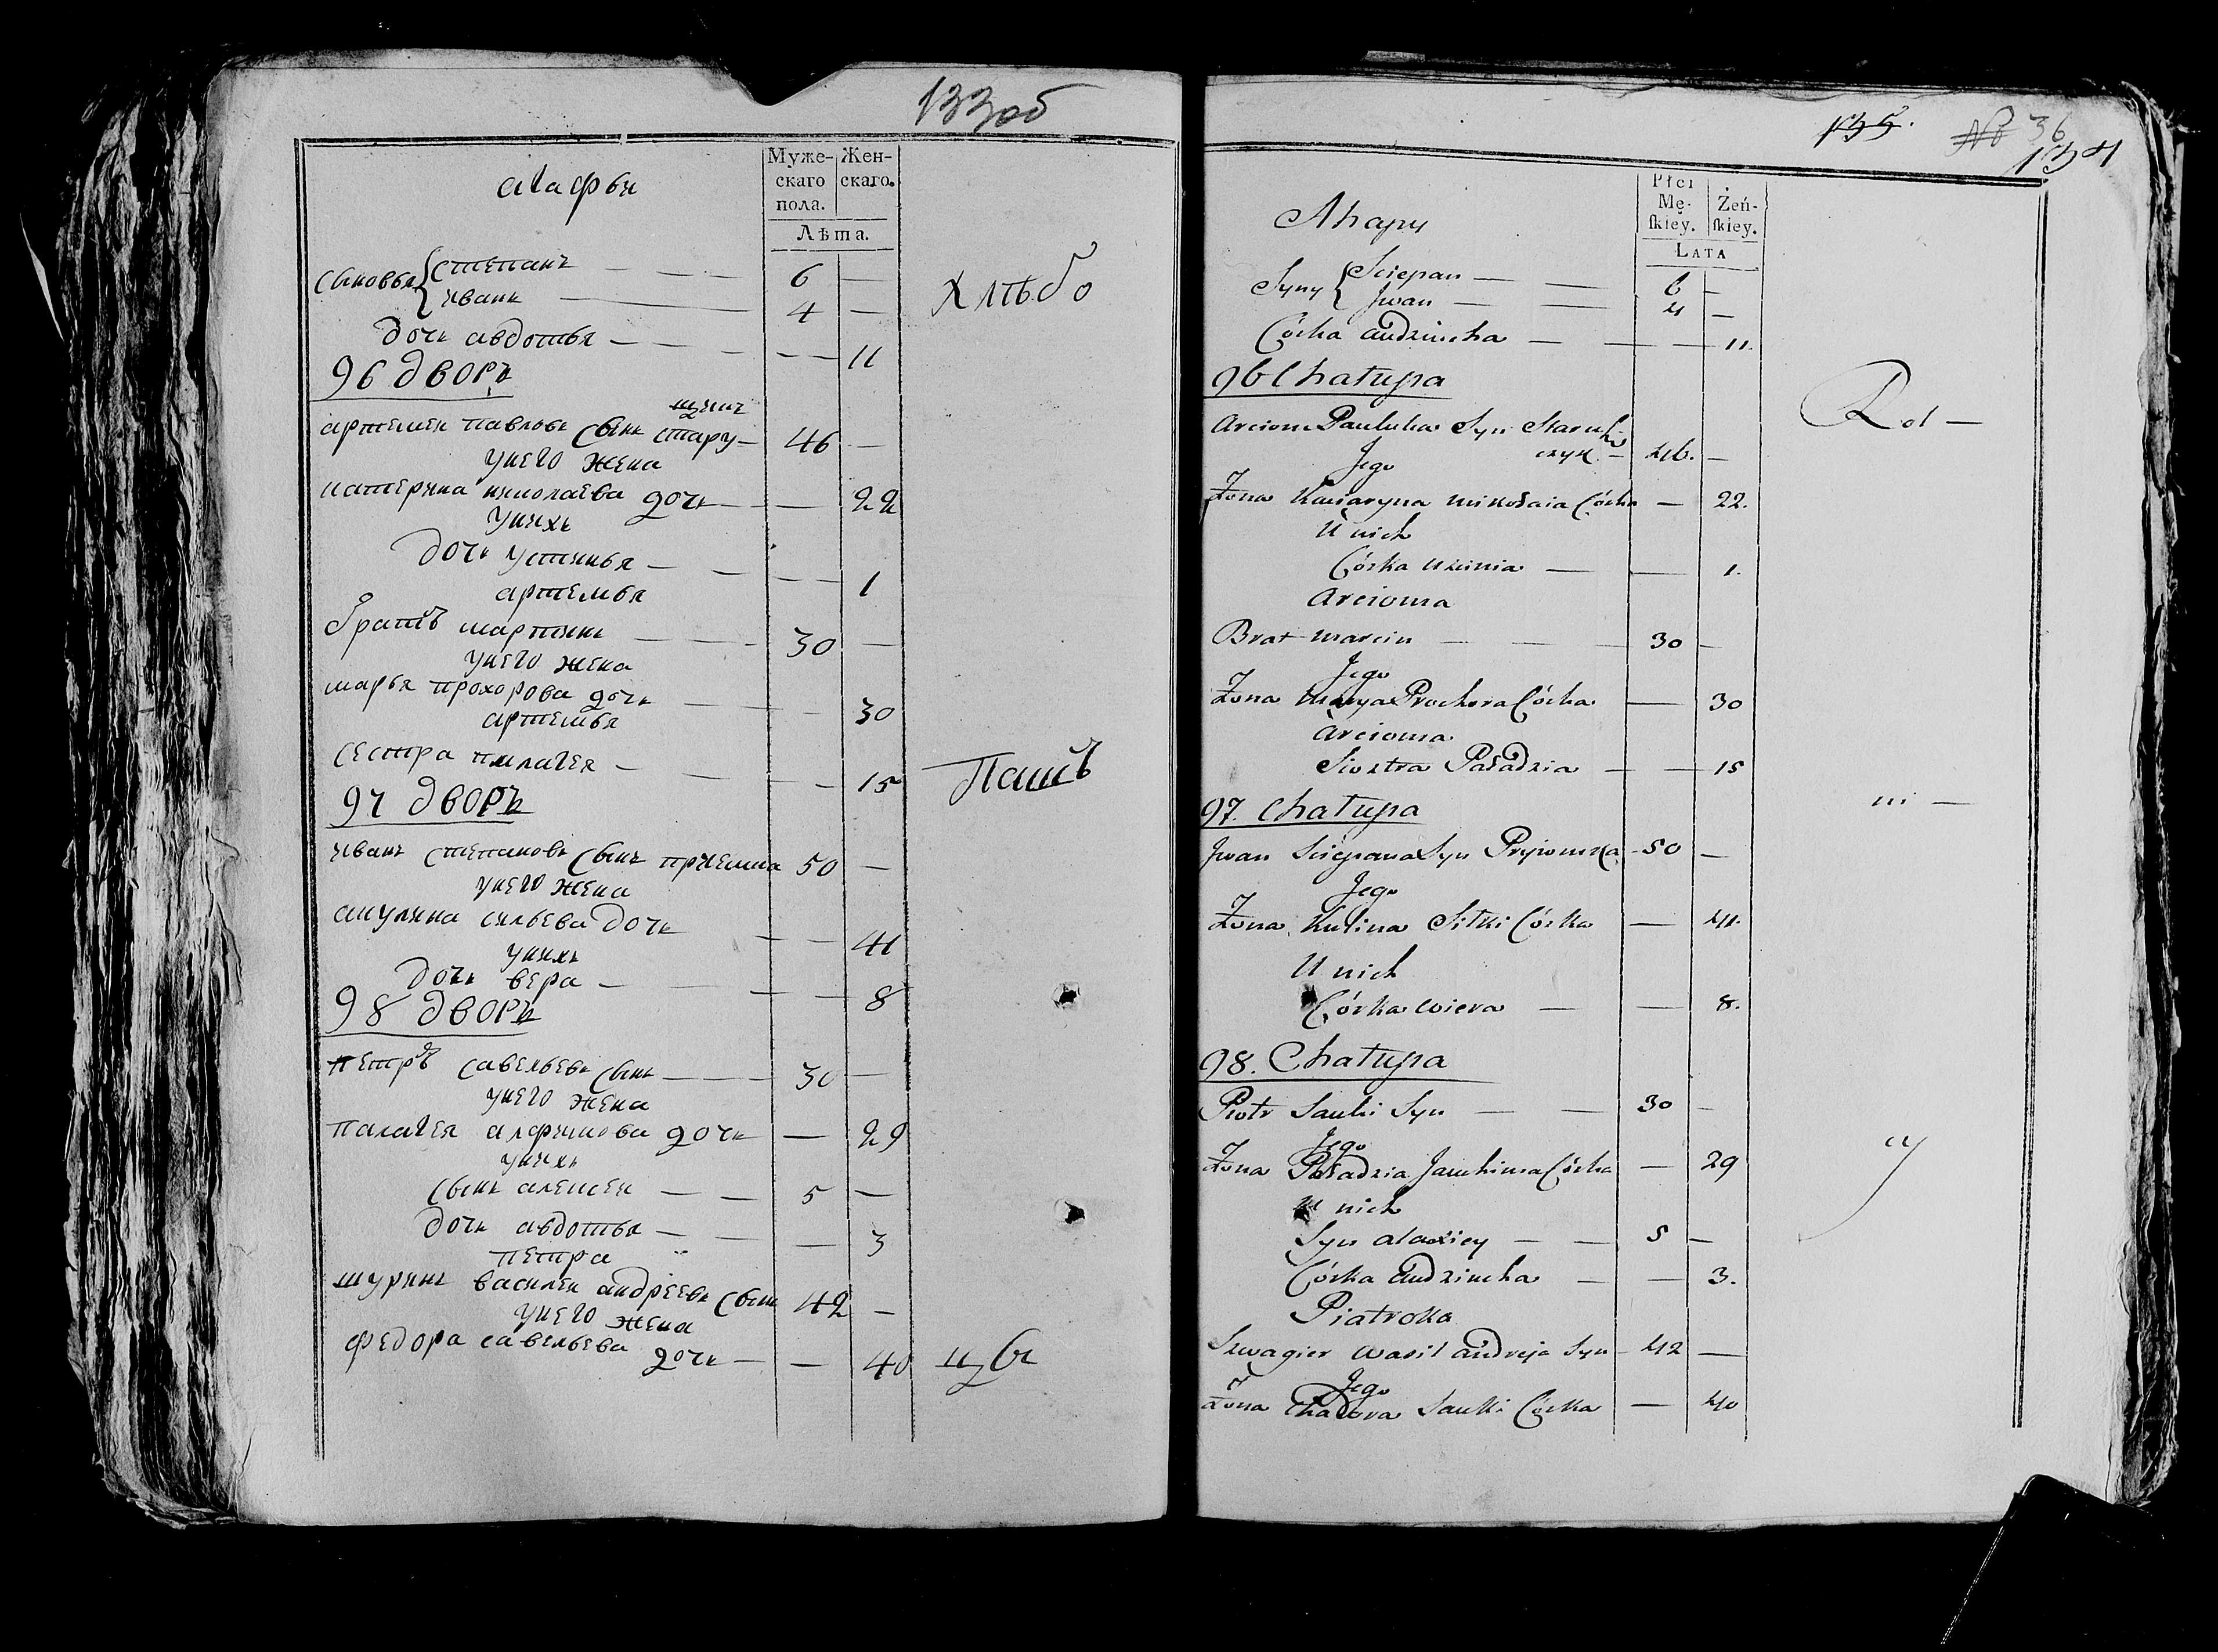 133об
Муже-
скаго
пола.
Жен-
скаго.
Лѣта.
агафьи
сыновья { Степанъ — — — 6 —
иванъ — 4 —
дочь авдотья — — — — — 11
Хлѣбо
96 дворъ
артемей павловъ сынъ стару- 46 —
щикъ
у него жена
катерина николаева дочь — — 22
у нихъ
дочь устинья — — — — 1
артемья
братъ мартинъ — — — 30 —
у него жена
марья прохорова дочь — — — 30
артемья
сестра пилагея — — — — 15
Пашъ
97 дворъ
иванъ степановъ сынъ приемша 50 —
у него жена
акулина сильева дочь — — 41
у нихъ
дочь вера — — — — 8
98 дворъ
петръ савельевъ сынъ — — — 30 —
у него жена
палагея алфимова дочь — — 29
у нихъ
сынъ алексей — — 5 —
дочь авдотья — — — — 3
петра
шуринъ василей андреевъ сынъ 42 —
у него жена
федора савельева
дочь — — 40
цы
135.
№ 36
134
Płci
Mę-
ſkiey.
Żeń-
ſkiey.
LATA
Ahapy
Syny { Sciepan — — 6 —
Jwan — — 4 —
Córka audziucha — — — 11.
96 Chatupa
Rol —
Arciom Pauluka Syn Staruh-
czyk — 46. —
Jego
Żona Kaciaryna mikołaia Córka — 22.
U nich
Córka Uscinia — — 1.
Arcioma
Brat marcin — — — 30 —
Jego
Żona Marya Prochora Córka — 30
Arcioma
Siostra Paładzia — — 15
97. Chatupa
ni —
Jwan Sciepana Syn Pryiomsza — 50 —
Jego
Żona Kulina Silki Córka — 41.
U nich
Córka wiera — — 8.
98. Chatupa
Piotr Sauki Syn — — 30 —
Jego
Żona Paładzia Jauchima Córka — 29
cy
U nich
Syn alaxiey — — 5 —
Córka audziucha — — 3.
Piatroka
Szwagier wasil andreja Syn — 42 —
Jego
Żona Chadora Sauki Córka — 40